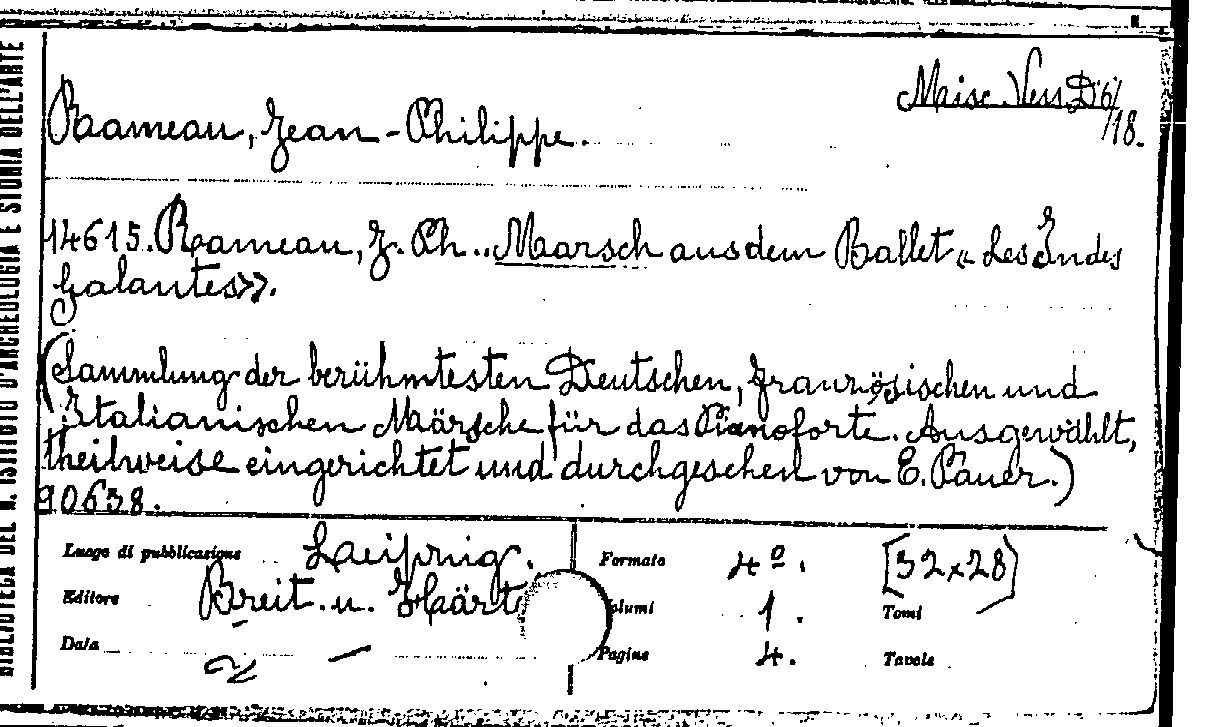 BIBLIOTECA DEL R. ISTITUTO D'ARCHEOLOGIA E STORIA DELL'ARTE
Misc. Vess. D 6/
/18.
Rameau, Jean-Philippe.
14615. Rameau, J. Ph.. Marsch aus dem Ballet « Les Indes
galantes».
(Sammlung der berühmtesten Deutschen, Französischen und
Italianischen Märsche für das Pianoforte. Ausgewählt,
theilweise eingerichtet und durchgesehen von E. Pauer.)
90638.
Luogo di pubblicazione Leipzig. Formato 4º. [32x28]
Editore Breit. u. Härt Volumi 1. Tomi
Data — Pagine 4. Tavole